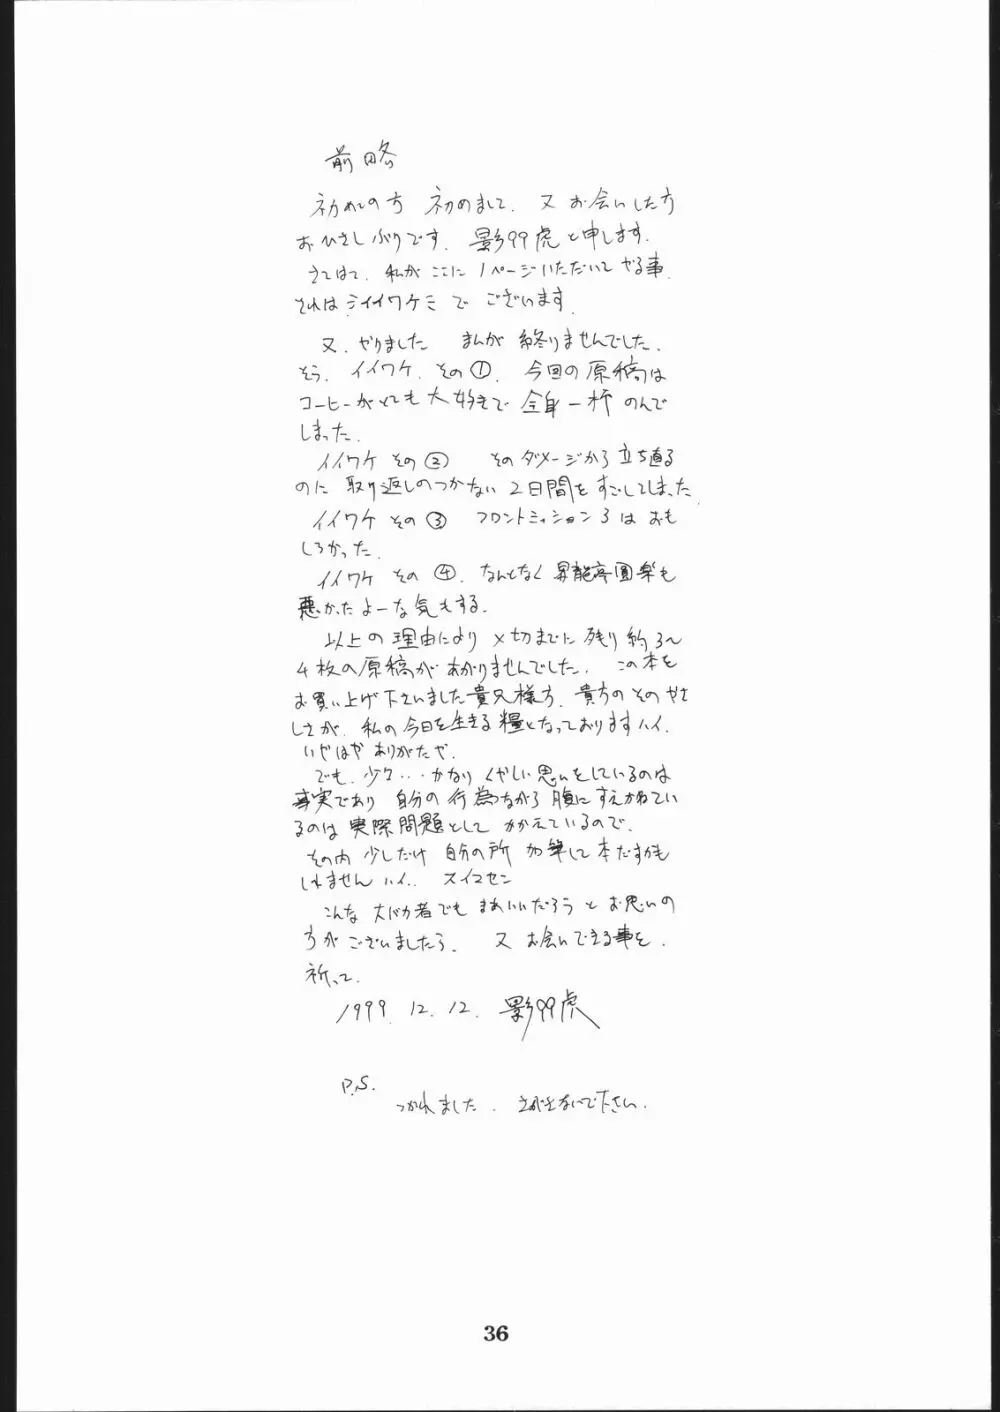 前略
初めての方 初めまして、又お会いした方
おひさしぶりです。影99虎と申します。
さてはて、私がここに1ページいただいてやる事、
それはミイイワケミでございます。
又、やりました まんが終りませんでした。
そう、イイワケ、その①、今回の原稿は
コーヒーがとても大好きで全身一杯のんで
しまった。
イイワケ その② そのダメージから立ち直る
のに取り返しのつかない2日間をすごしてしまった。
イイワケ その③ フロントミッション3はおも
しろかった。
イイワケ その④、なんとなく昇龍亭圓楽も
悪かたよーな気もする。
以上の理由により〆切までに残り約3〜
4枚の原稿があがりませんでした。この本を
お買い上げ下さいました貴兄様方、貴方のそのやさ
しさが、私の今日を生きる糧となっておりますハイ。
いやはやありがたや。
でも、少々…かなりくやしい思いをしているのは
事実であり 自分の行為ながら腹にすえかねてい
るのは実際問題としてかかえているので、
その内 少しだけ 自分の所 加筆して本だすかも
しれません ハイ‥ スイマセン
こんな大バカ者でもまあいいだろうとお思いの
方がございましたら、又お会いできる事を、
祈って、
1999. 12. 12. 影99虎
P.S.
つかれました。さがさないで下さい。
36